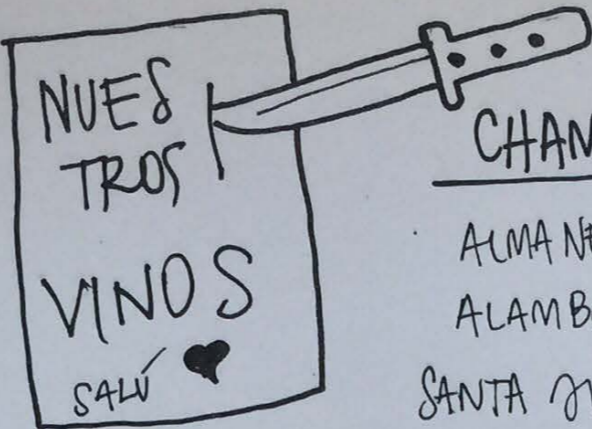 NUES
TROS
VINOS
SALÚ
CHAN
ALMA
ALAMB
SANTA